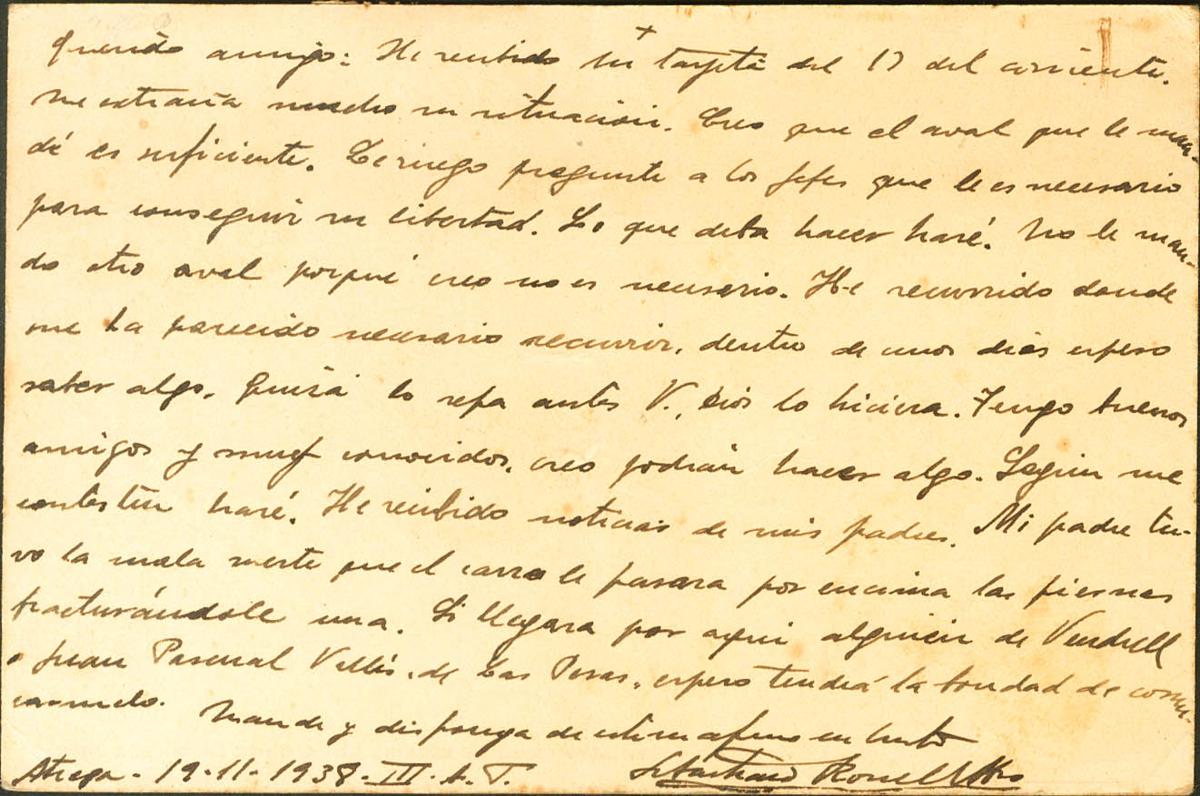 +
Querido amigo: He recibido su tarjeta del 17 del corriente.
me extraña mucho su situación. Creo que el aval que le man-
dé es suficiente. Le ruego pregunte a los Jefes que le es necesario
para conseguir su libertad. Lo que deba hacer haré. No le man-
do otro aval porqué creo no es necesario. He recurrido donde
me ha parecido necesario recurrir, dentro de unos días espero
saber algo. Quizá lo sepa antes V., Dios lo hiciera. Tengo buenos
amigos y muy conocidos, creo podrán hacer algo. Según me
contesten haré. He recibido noticias de mis padres. Mi padre tu-
vo la mala suerte que el carro le pasara por encima las piernas
fracturándole una. Si llegara por aquí alguien de Vendrell
o Juan Pascual Vellés, de Las Pesas, espero tendrá la bondad de comu-
carmelo.
Mande y disponga de su afmo en
- 19-11-1938 - III. A. T.